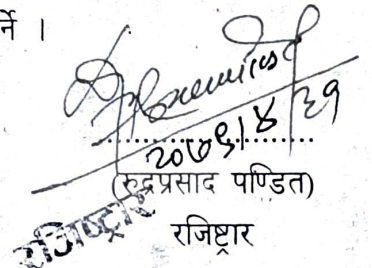 र्ने ।
२०७९/४/३१
(रुद्रप्रसाद पण्डित)
रजिष्ट्रार
रजिष्ट्रार